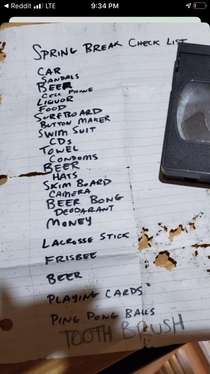 Reddit
LTE
9:34 PM
SPRING BREAK CHECK LIST
CAR
SANDALS
BEER
CELL PHONE
LIQUOR
FOOD
SURFBOARD
BUTTON MAKER
SWIM SUIT
CDs
TOWEL
CONDOMS
BEER
HATS
SKIM BOARD
CAMERA
BEER BONG
DEODARANT
MONEY
LACROSSE STICK
FRISBEE
BEER
PLAYING CARDS
PING PONG BALLS
TOOTH BRUSH